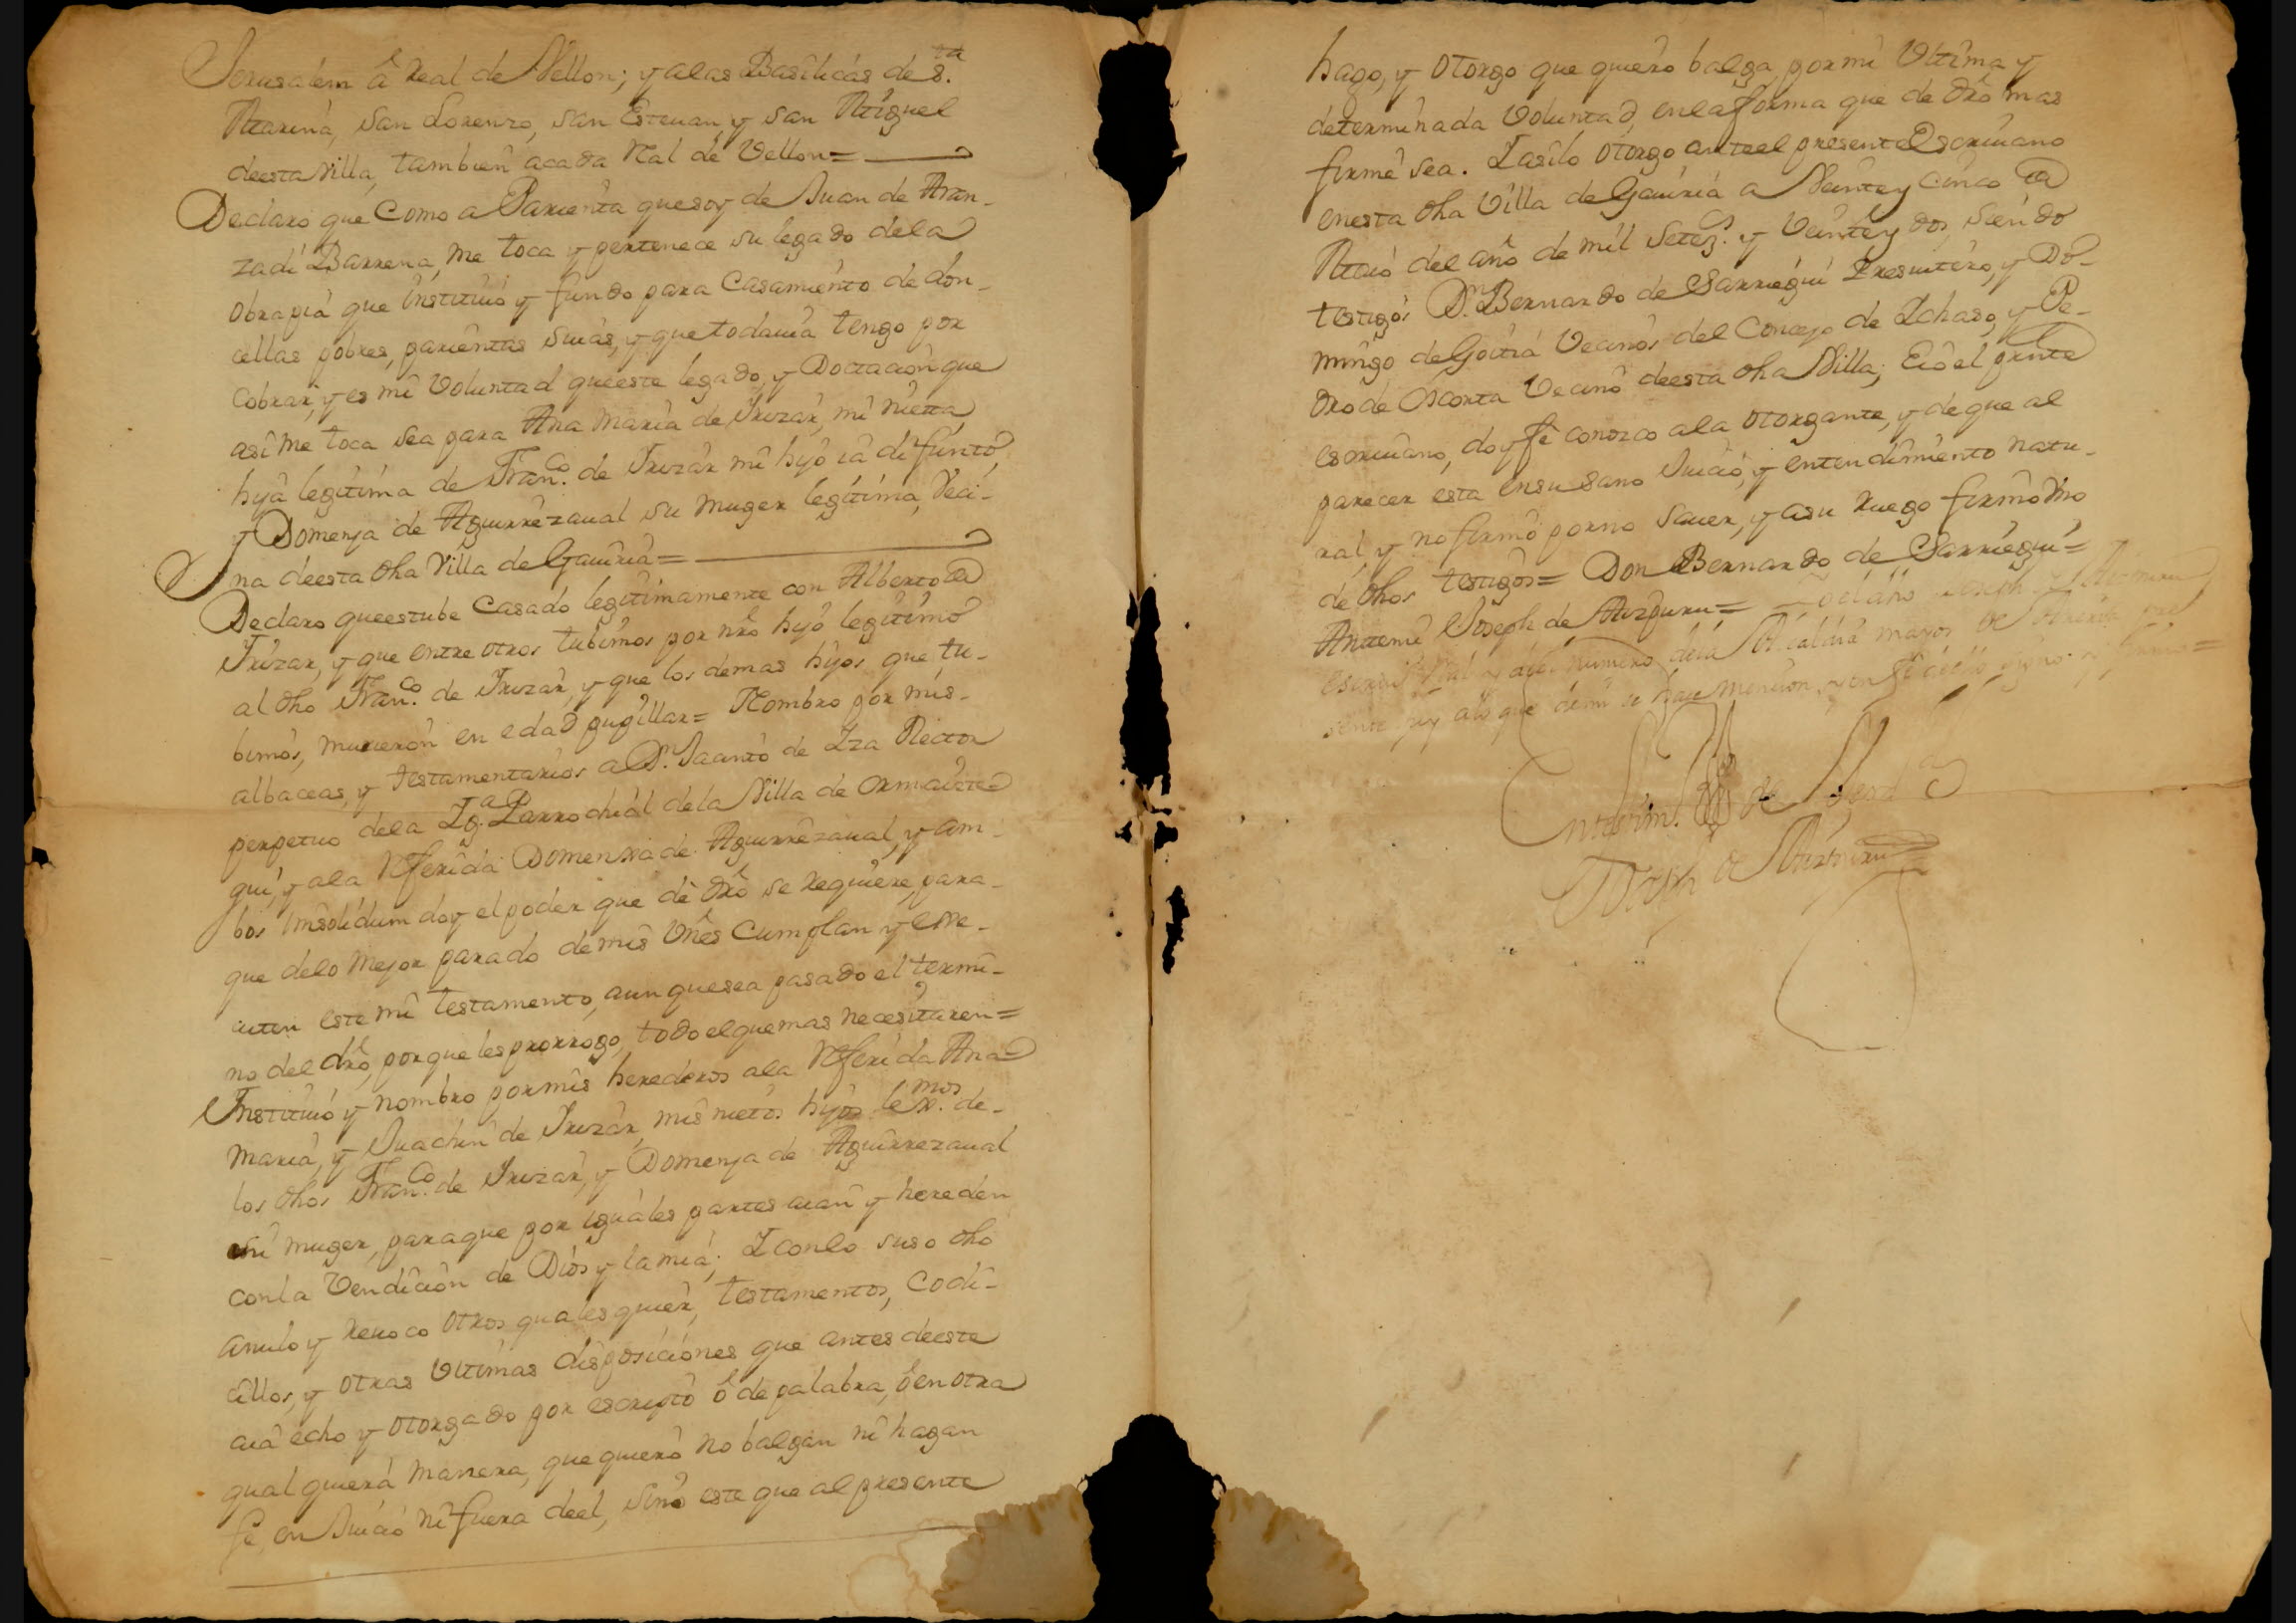 Jerusalem â Real de Vellon; y alas Basilicas de S.ta
Marina, San Lorenzo, San Esteuan y San Miguel
deesta Villa, tambien acada Ral de Vellon=
Declaro que Como a Parienta que soy de Juan de Aran-
zadi Barrena, me toca y pertenece su legado dela
obrapia que instituió y fundo para Casamiento de don-
cellas pobres, parientas suias, y que todauia tengo por
Cobrar, y es mi Voluntad queeste legado, y Dottacion que
asi me toca sea para Ana Maria de Irizar, mi nietta
hija legitima de Fran.co de Irizar mi hijo ia difunto,
y Domenja de Aguirrezaual su muger legitima, Veci-
na deesta dha Villa de Gauiria=
Declaro queestube Casado legitimamente con Alberto
Irizar, y que entre otros tubimos por nro hijo legitimo
al dho Fran.co de Irizar, y que los demas hijos que tu-
bimos, murieron en edad pupillar= Nombro por mis-
albaceas, y testamentarios a D.n Jacinto de Iza Rector
perpetuo dela Ig.a Parrochial dela Villa de Ormaizte-
gui, y ala Referida Domenxa de Aguirrezaual, y am-
bos Insolidum doy el poder que de dro se requiere, para-
que delo mejor parado de mis Vnes Cumplan y exe-
cuten este mi testamento, aunquesea pasado el termi-
no del dro, porque les prorrogo, todo el que mas necesitaren=
Instituió y nombro por mis herederos ala Referida Ana
Maria, y Juachin de Irizar, mis nietos hijos lex.mos de-
los dhos Fran.co de Irizar, y Domenja de Aguirrezaual
su muger, paraque por iguales partes aian y hereden
conla Vendicion de Dios y la mia; I conlo suso dho
anulo y reuoco otros qualesquier, testamentos, Codi-
cillos, y otras Vltimas disposiciones que antes deeste
aia echo y otorgado por escripto ô de palabra, ô en otra
qualquiera manera, que quiero no balgan ni hagan
fe, en Juicio ni fuera deel, sino este que al presente
hago, y otorgo que quiero balga por mi Vltima y
determinada Voluntad, enla forma que de dro mas
firme sea. I asilo otorgo anteel presente Escriuano
enesta dha Villa de Gauiria a Veinte y cinco
Maio del año de mil setez.s y Veinte y dos, siendo
testigos D.n Bernardo de Sarriegui Presuitero, y Do-
mingo de Goitia Vecinos del Concejo de Ichaso, y Pe-
dro de Ascorta Vecino deesta dha Villa; E io el pnte
escriuano, doy fê conozco ala otorgante, y deque al
parecer esta ensu sano Juicio, y entendimiento natu-
ral, y no firmó porno sauer, y asu ruego firmó vno
de dhos testigos= Don Bernardo de Sarriegui=
Antemi Joseph de Aizpuru=
numero dela Alcaldia mayor de
que demi se hace mencion, y en fê
de
Joseph de Aizpuru